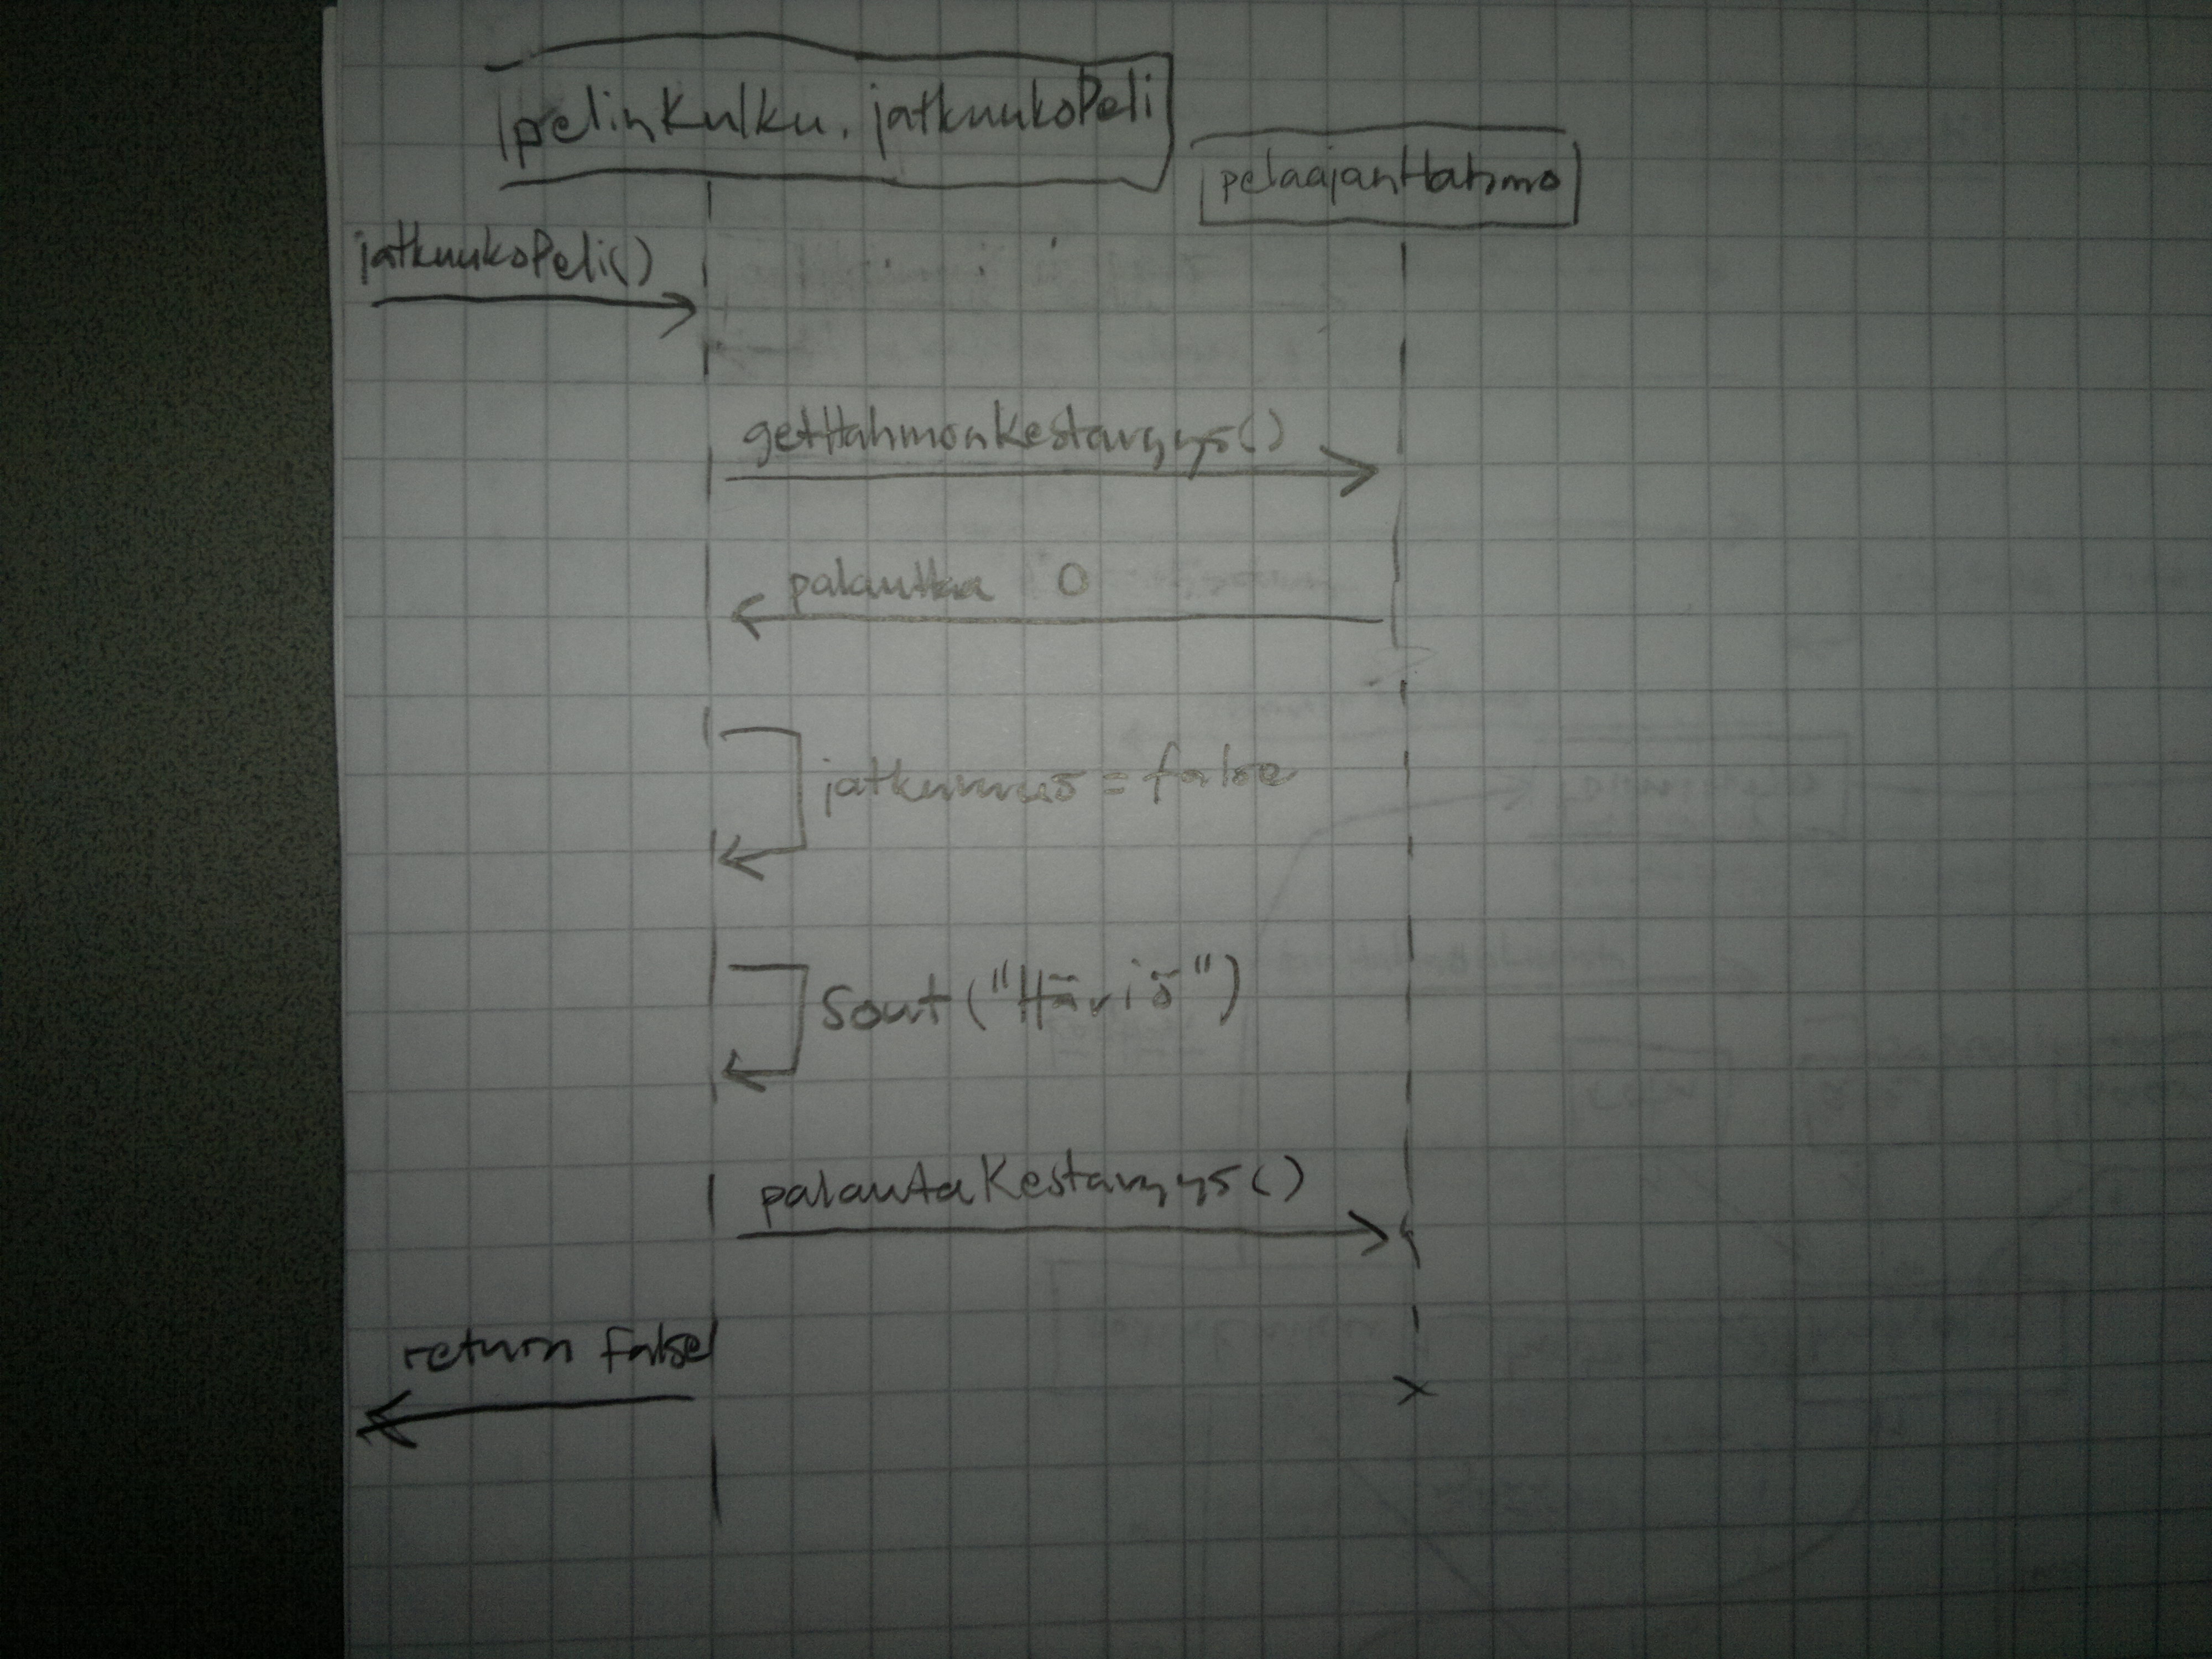 pelinKulku.jatkuukoPeli
pelaajanHahmo
jatkuukoPeli()
getHahmonKestavyys()
palauttaa 0
= false
Sout("Häviö")
palautaKestavyys()
return false